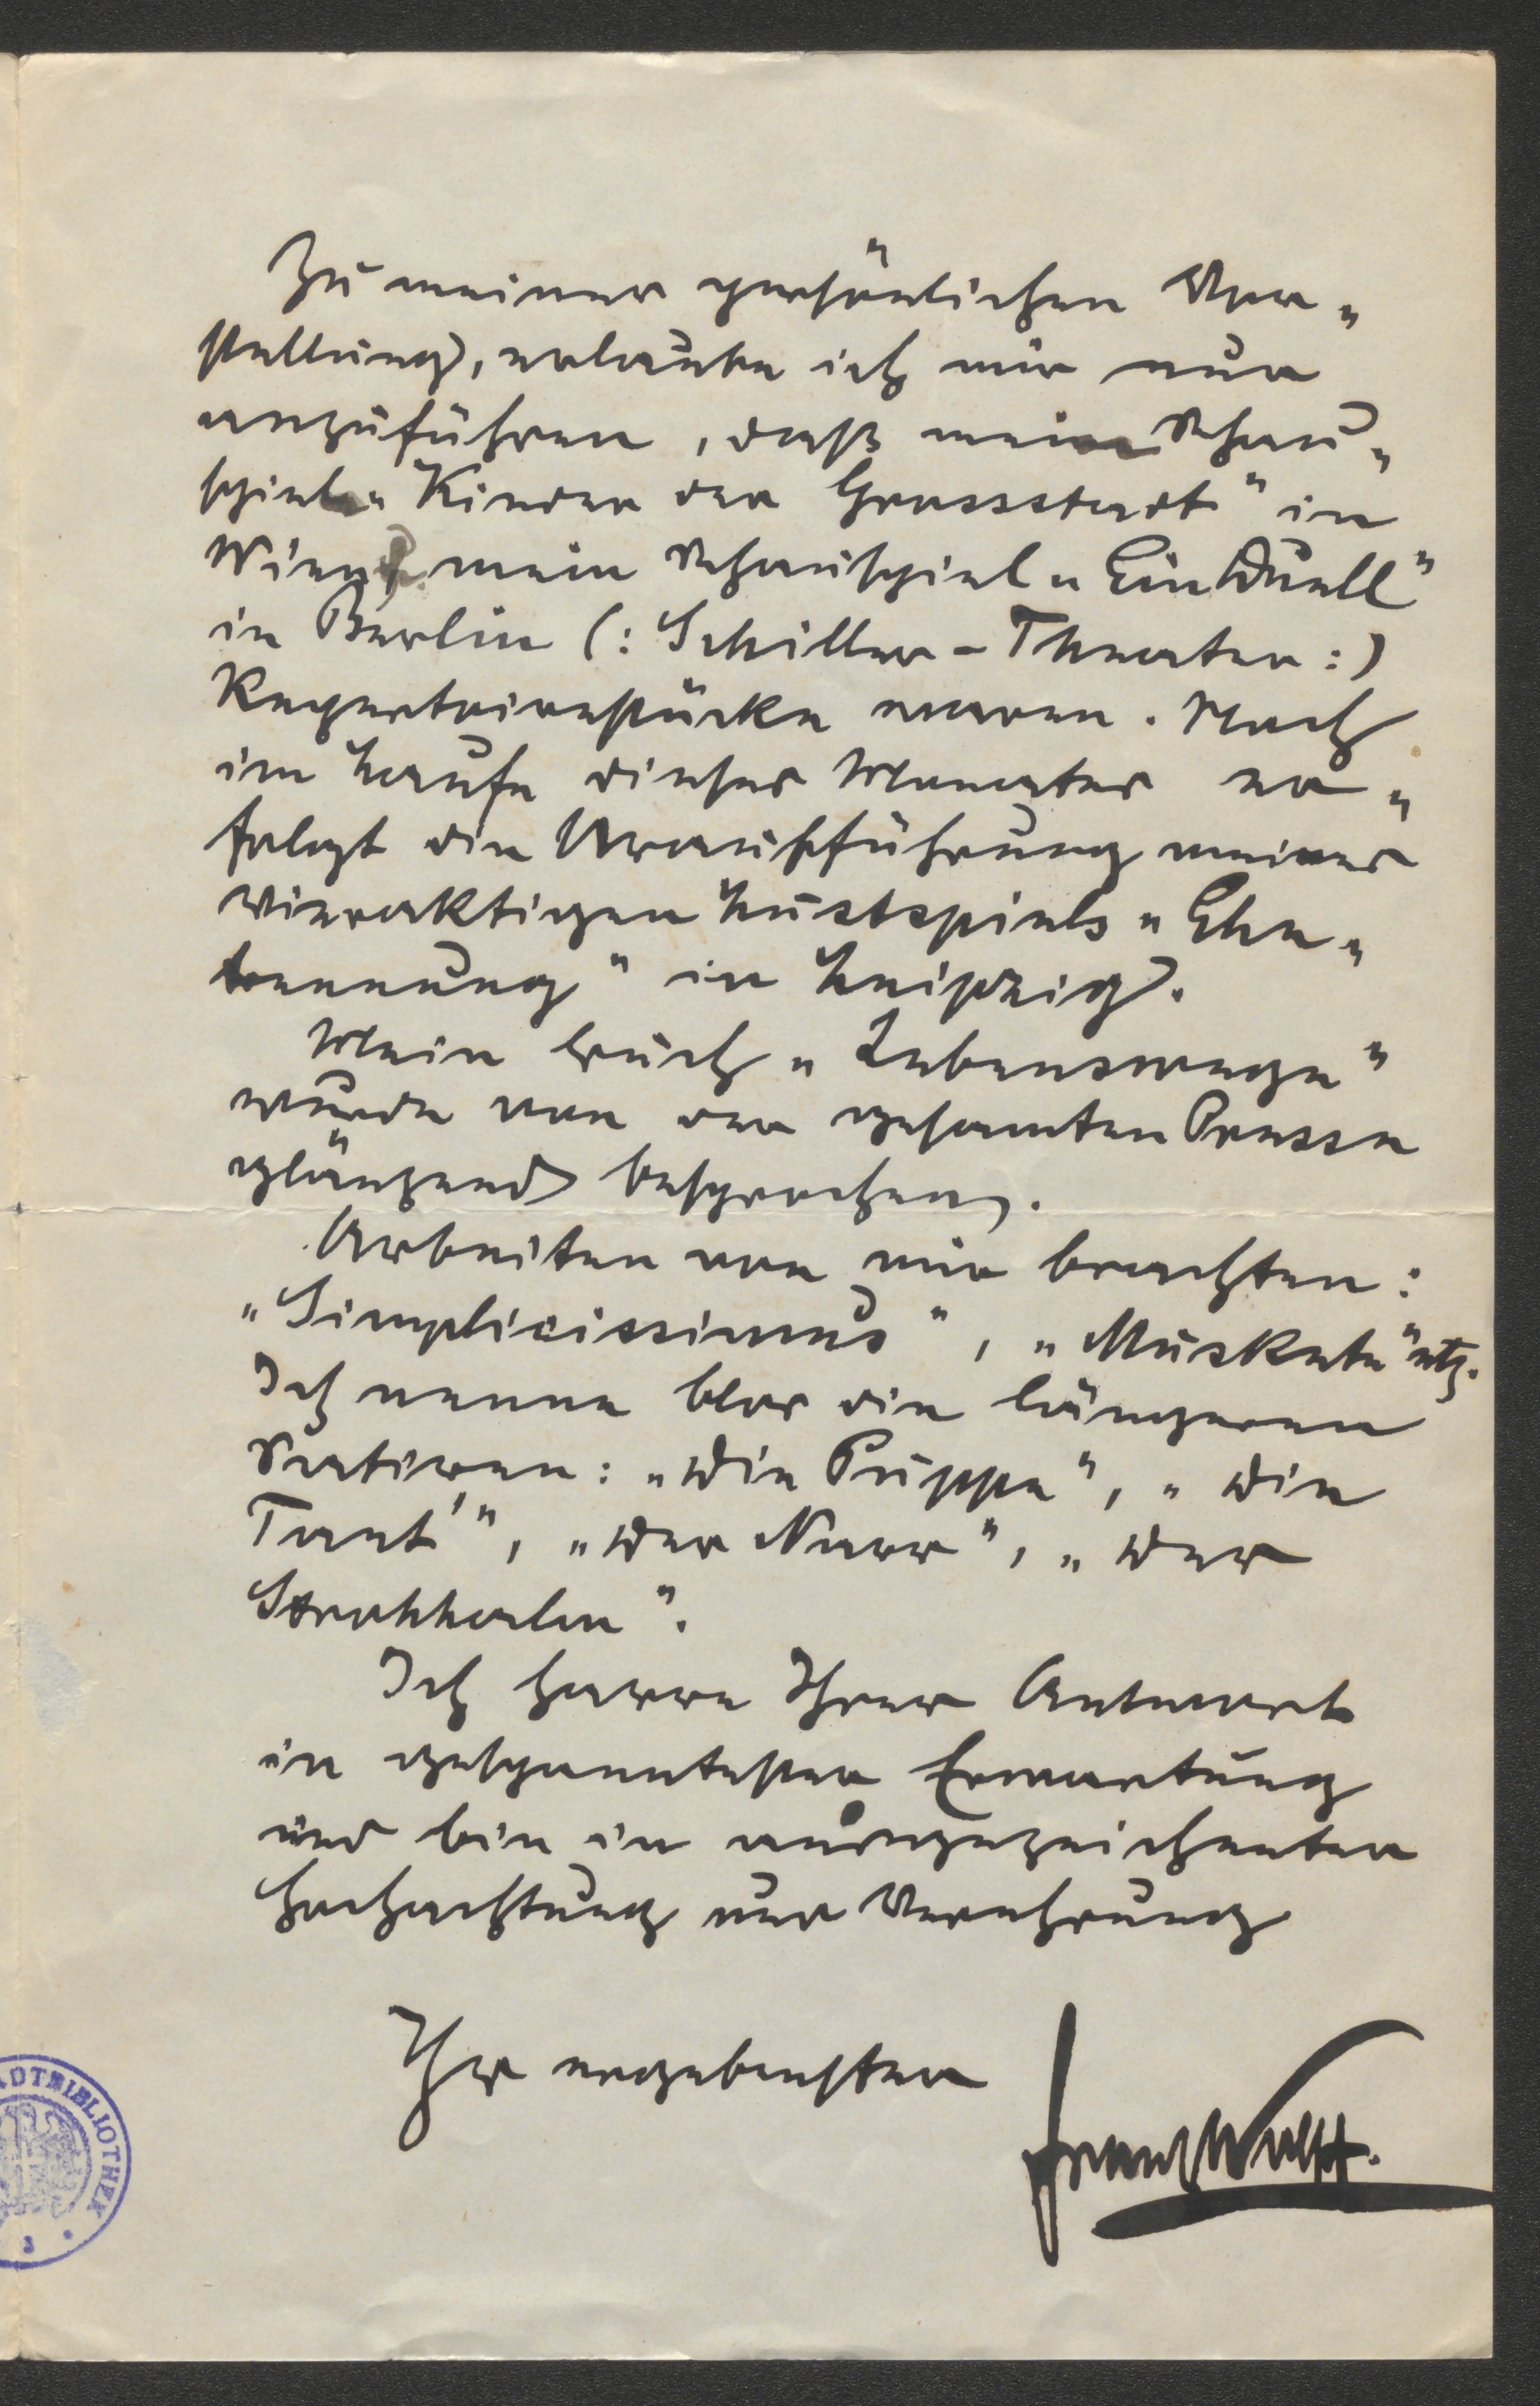 Zu meiner persönlichen Vor„
stellung, erlaube ich mir nur
anzuführen, daß mein Schau„
spiel „Kinder der Grossstadt“ in
Wien, mein Schauspiel „Ein Duell“
in Berlin (: Schiller-Theater :)
Repertoirestücke waren. Noch
im Laufe dieses Monates er„
folgt die Uraufführung meines
vieraktigen Lustspiels „Ehe„
trennung“ in Leipzig.
Mein Buch „Lebenswege“
wurde von der gesamten Presse
glänzend besprochen.
Arbeiten von mir brachten:
„Simplicissimus“, „Muskete“ etz.
Ich nenne blos die längeren
Satiren: „Die Puppe“, „Die
Tant'“, „Der Narr“, „Der
Strohhalm“.
Ich harre Ihrer Antwort
in gespanntester Erwartung
und bin in ausgezeichneter
Hochachtung und Verehrung
Ihr ergebenster
Franz Wolff.
ADTBIBLIOTHEK